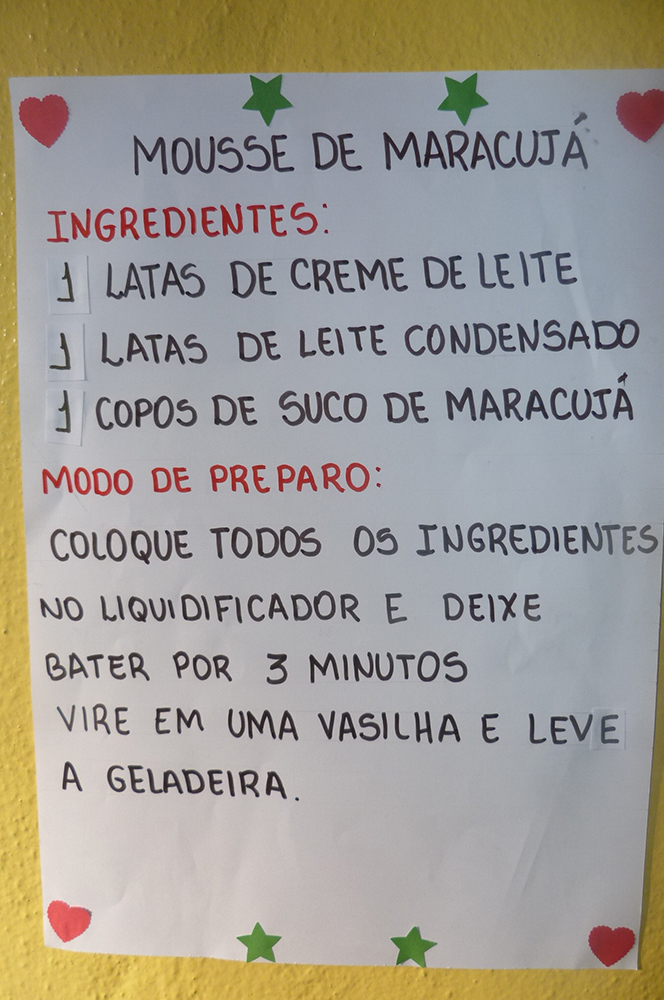 MOUSSE DE MARACUJÁ
INGREDIENTES:
1 LATAS DE CREME DE LEITE
1 LATAS DE LEITE CONDENSADO
1 COPOS DE SUCO DE MARACUJÁ
MODO DE PREPARO:
COLOQUE TODOS OS INGREDIENTES
NO LIQUIDIFICADOR E DEIXE
BATER POR 3 MINUTOS
VIRE EM UMA VASILHA E LEVE
A GELADEIRA.